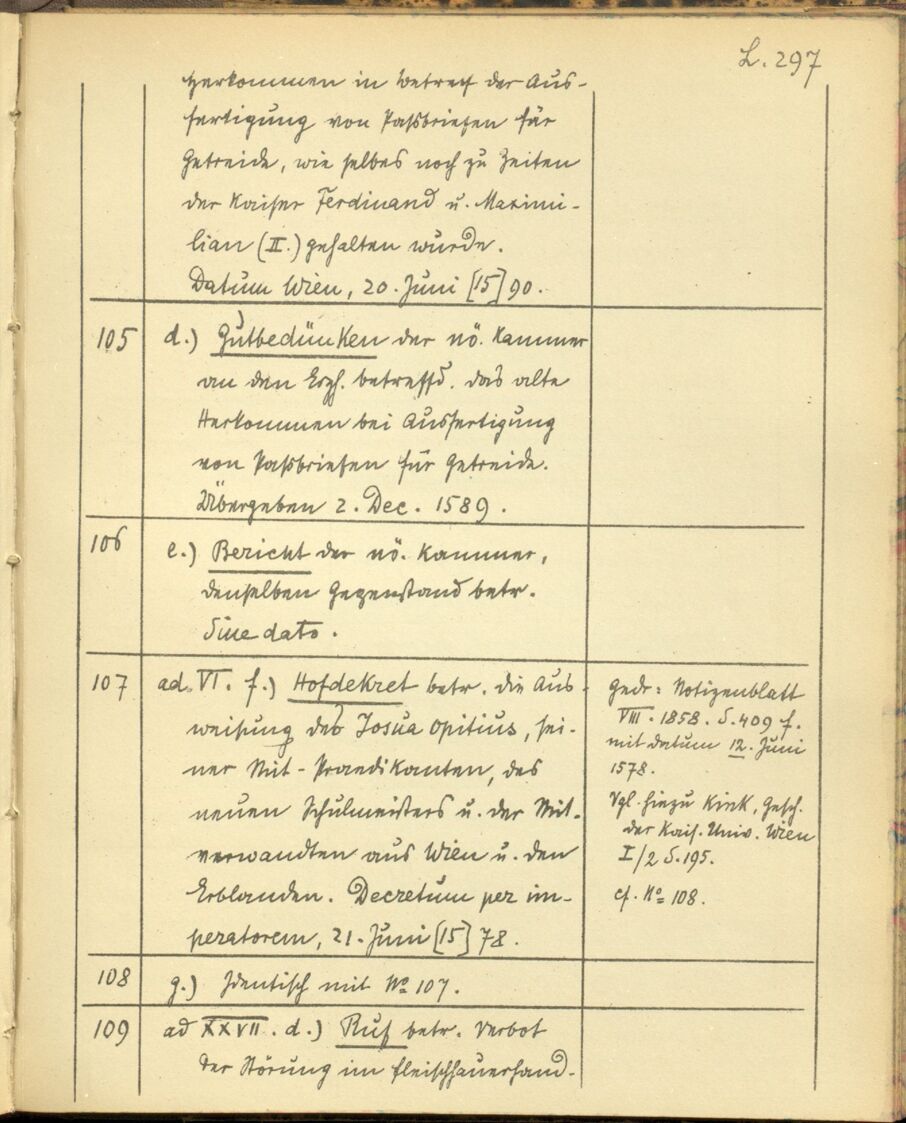 L. 297
Herkommen in betreff der Aus-
fertigung von Passbriefen für
Getreide, wie selbes noch zu Zeiten
der Kaiser Ferdinand u. Maximi-
lian (II.) gehalten wurde.
Datum Wien, 20. Juni [15]90.
105 d.) Gutbedünken der nö. Kammer
an den Erzh. betreffd. das alte
Herkommen bei Ausfertigung
von Passbriefen für Getreide.
Übergeben 2. Dec. 1589.
106 e.) Bericht der nö. Kammer,
denselben Gegenstand betr.
Sine dato.
107 ad VI. f.) Hofdekret betr. die Aus-
weisung des Josua Opitius, sei-
ner Mit-Praedikanten, des
neuen Schulmeisters u. der Mit-
verwandten aus Wien u. den
Erblanden. Decretum per im-
peratorem, 21. Juni [15]78.
Gedr: Notizenblatt
VIII. 1858. S. 409 f.
mit datum 12. Juni
1578.
Vgl. hiezu Kink, Gesch.
der Kais. Univ. Wien
I/2 S. 195.
cf. No 108.
108 g.) Identisch mit No 107.
109 ad XXVII. d.) Ruf betr. Verbot
der Störung im Fleischhauerhand-